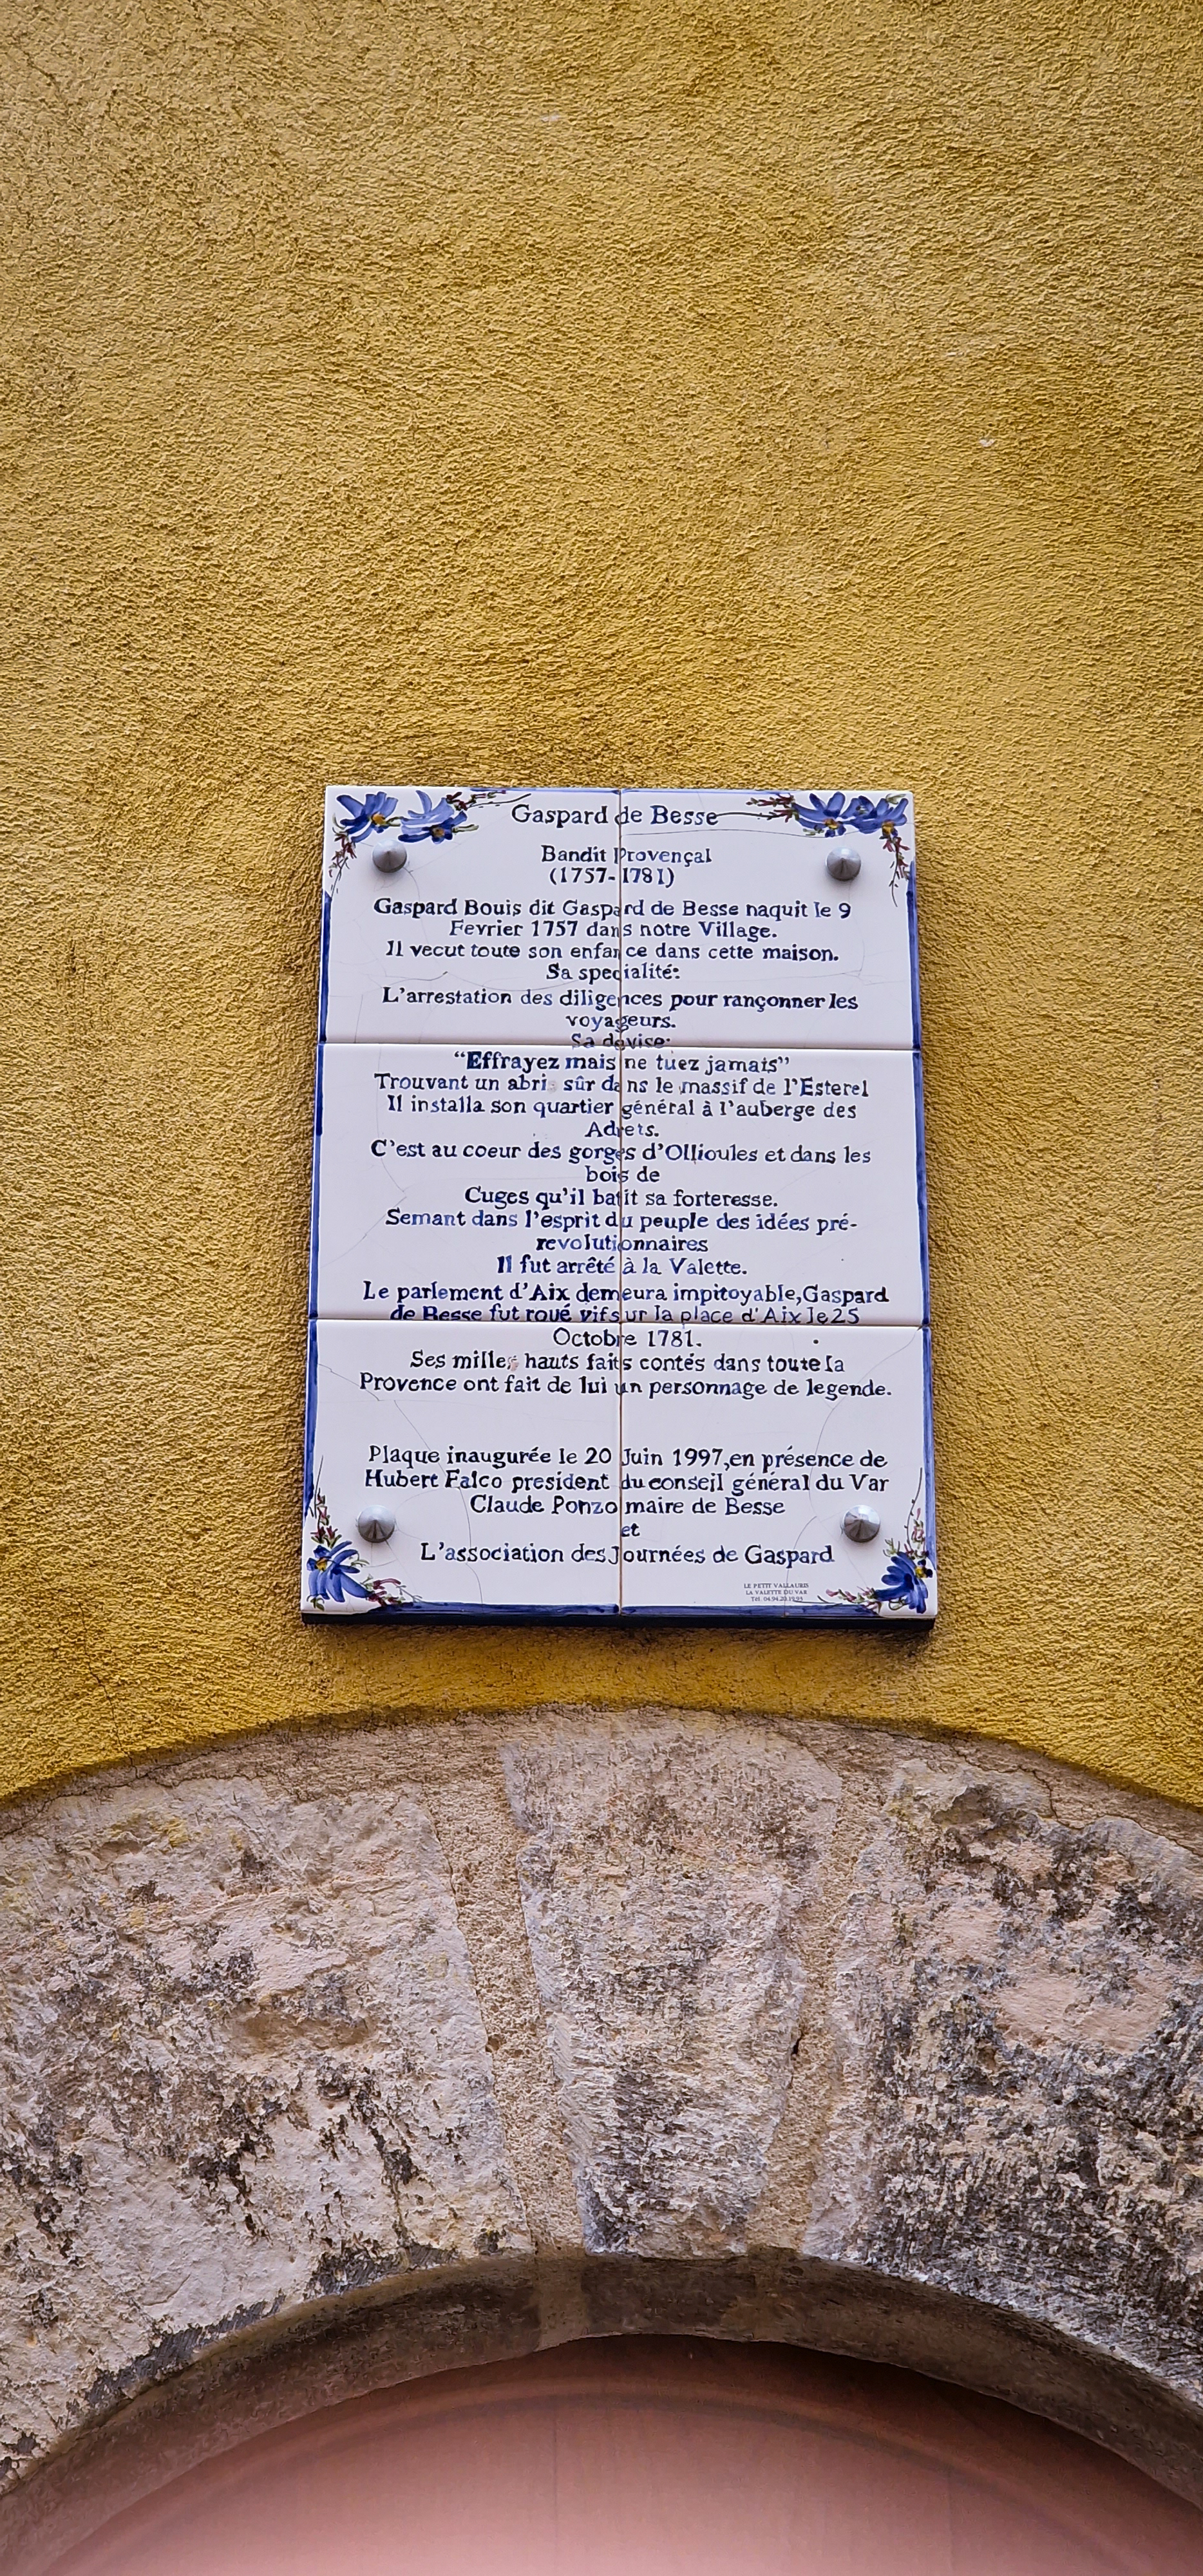 Gaspard de Besse
Bandit Provençal
(1757-1781)
Gaspard Bouis dit Gaspard de Besse naquit le 9
Fevrier 1757 dans notre Village.
Il vecut toute son enfance dans cette maison.
Sa specialité:
L'arrestation des diligences pour rançonner les
voyageurs.
Sa devise:
"Effrayez mais ne tuez jamais"
Trouvant un abri sûr dans le massif de l'Esterel
Il installa son quartier général à l'auberge des
Adrets.
C'est au coeur des gorges d'Ollioules et dans les
bois de
Cuges qu'il batit sa forteresse.
Semant dans l'esprit du peuple des idées pré-
revolutionnaires
Il fut arrêté à la Valette.
Le parlement d'Aix demeura impitoyable,Gaspard
de Besse fut roué vif sur la place d'Aix le 25
Octobre 1781.
Ses milles hauts faits contés dans toute la
Provence ont fait de lui un personnage de legende.
Plaque inaugurée le 20 Juin 1997,en présence de
Hubert Falco president du conseil général du Var
Claude Ponzo maire de Besse
et
L'association des Journées de Gaspard
LE PETIT VALLAURIS
LA VALETTE DU VAR
Tél. 04.94.20.19.95